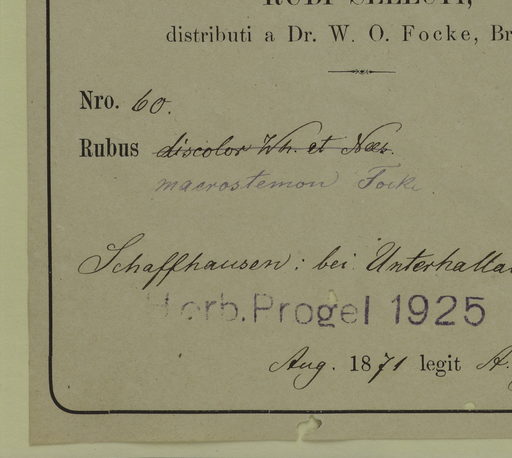 RUBI SELECTI,
distributi a Dr. W. O. Focke, Br
Nro. 60.
Rubus discolor Wh. et Nees.
macrostemon Focke
Schaffhausen: bei Unterhallau
Herb. Progel 1925
Aug. 1871 legit A.